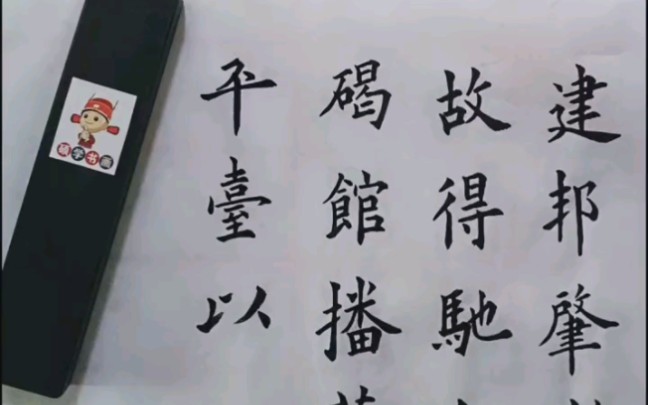 建邦肇
故得馳
碣館播
平臺以